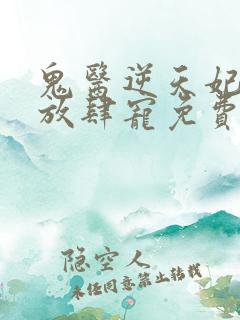 鬼醫逆天妃
放肆寵免費
隐空人
未经同意禁止转载